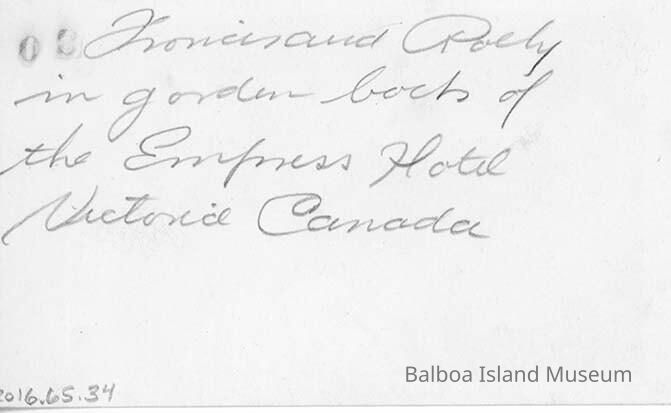 Francis and Rolly
in garden back of
the Empress Hotel
Victoria Canada
Balboa Island Museum
2016.65.34